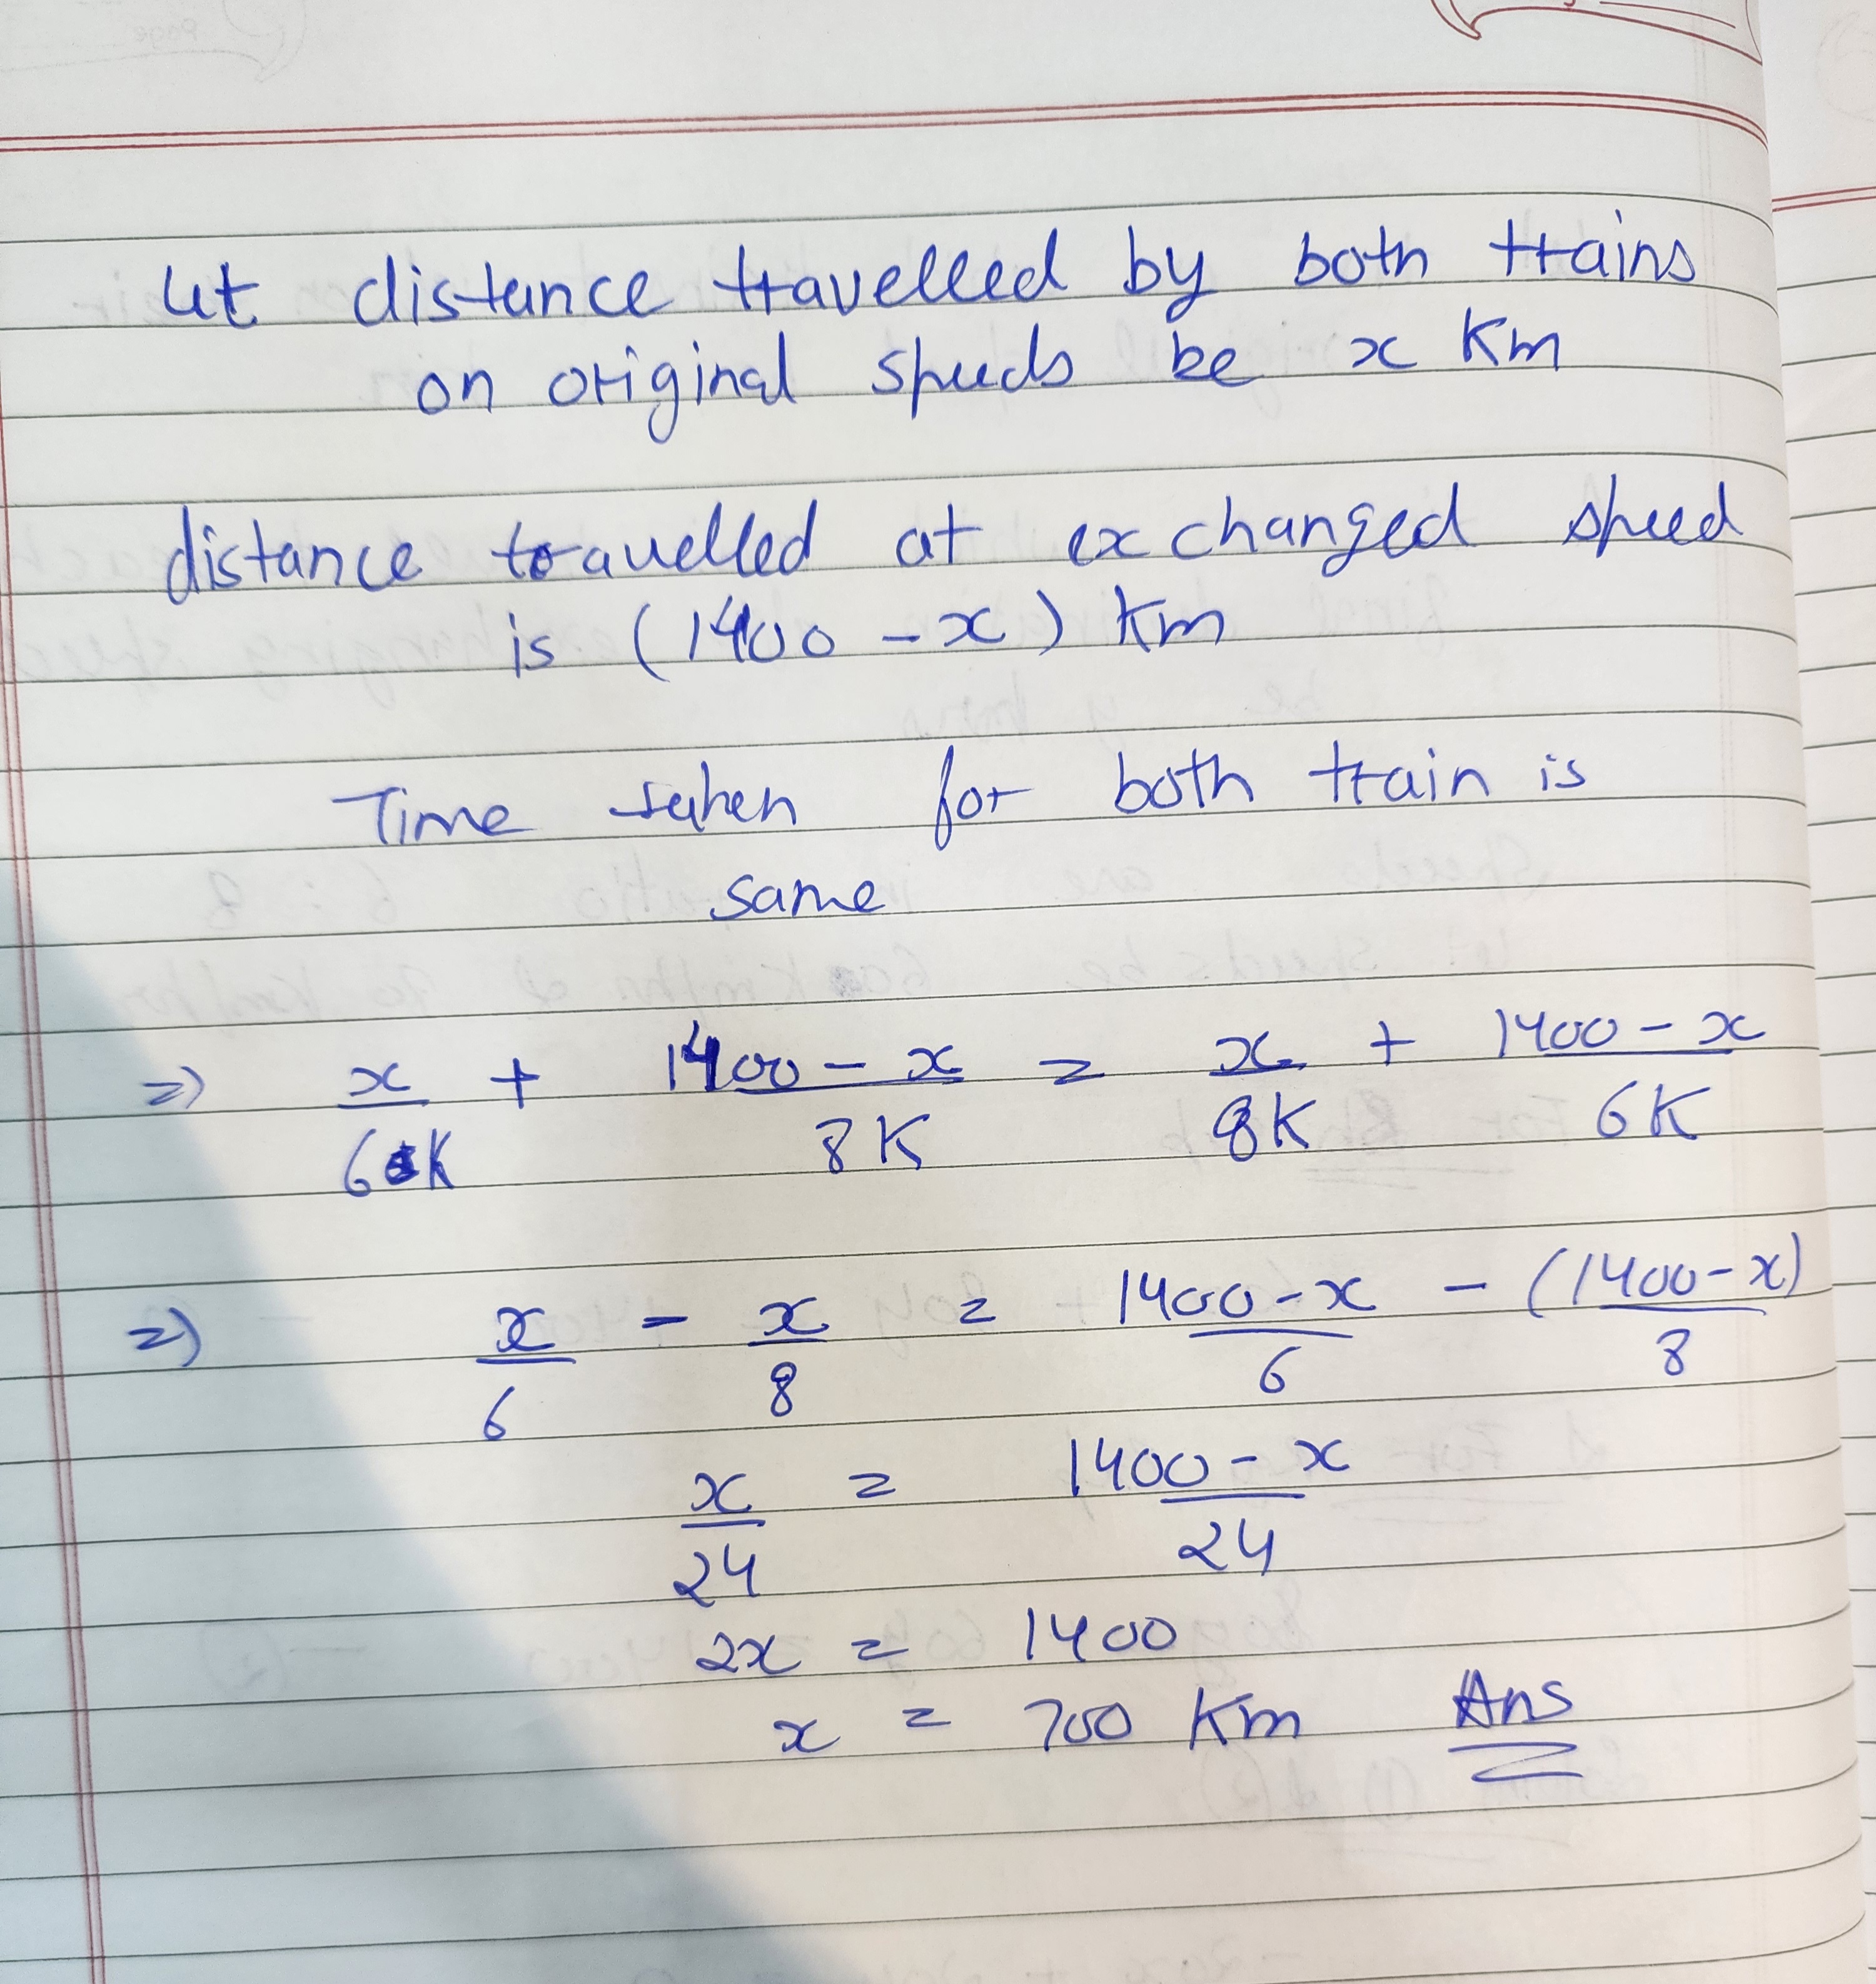 let distance travelled by both trains
on original speeds be x Km
distance travelled at exchanged speed
is (1400 - x) Km
Time taken for both train is
same
=> x/6K + 1400 - x/8K = x/8K + 1400 - x/6K
=> x/6 - x/8 = 1400 - x/6 - (1400 - x)/8
x/24 = 1400 - x/24
2x = 1400
x = 700 Km Ans